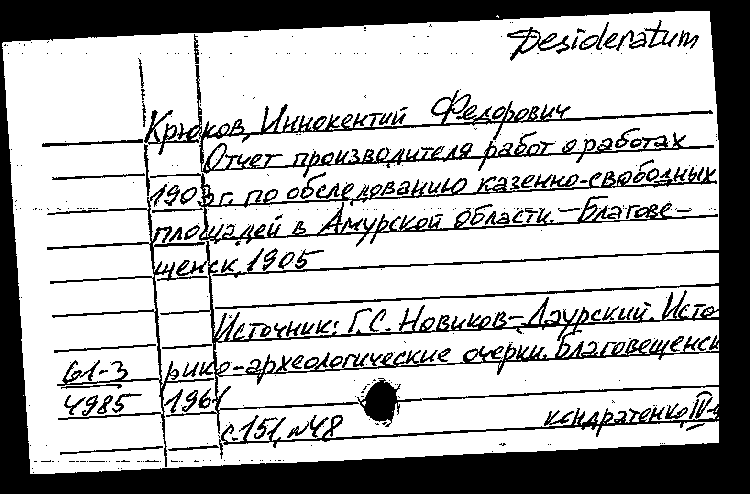 Desideratum
Крюков, Иннокентий Федорович
Отчет производителя работ о работах
1903 г. по обследованию казенно-свободных
площадей в Амурской области. - Благове-
щенск, 1905
Источник: Г.С. Новиков-Даурский. Исто
61-3 рико-археологические очерки. Благовещенск
4985 1961
с.151, №48 кондратенко, IV-